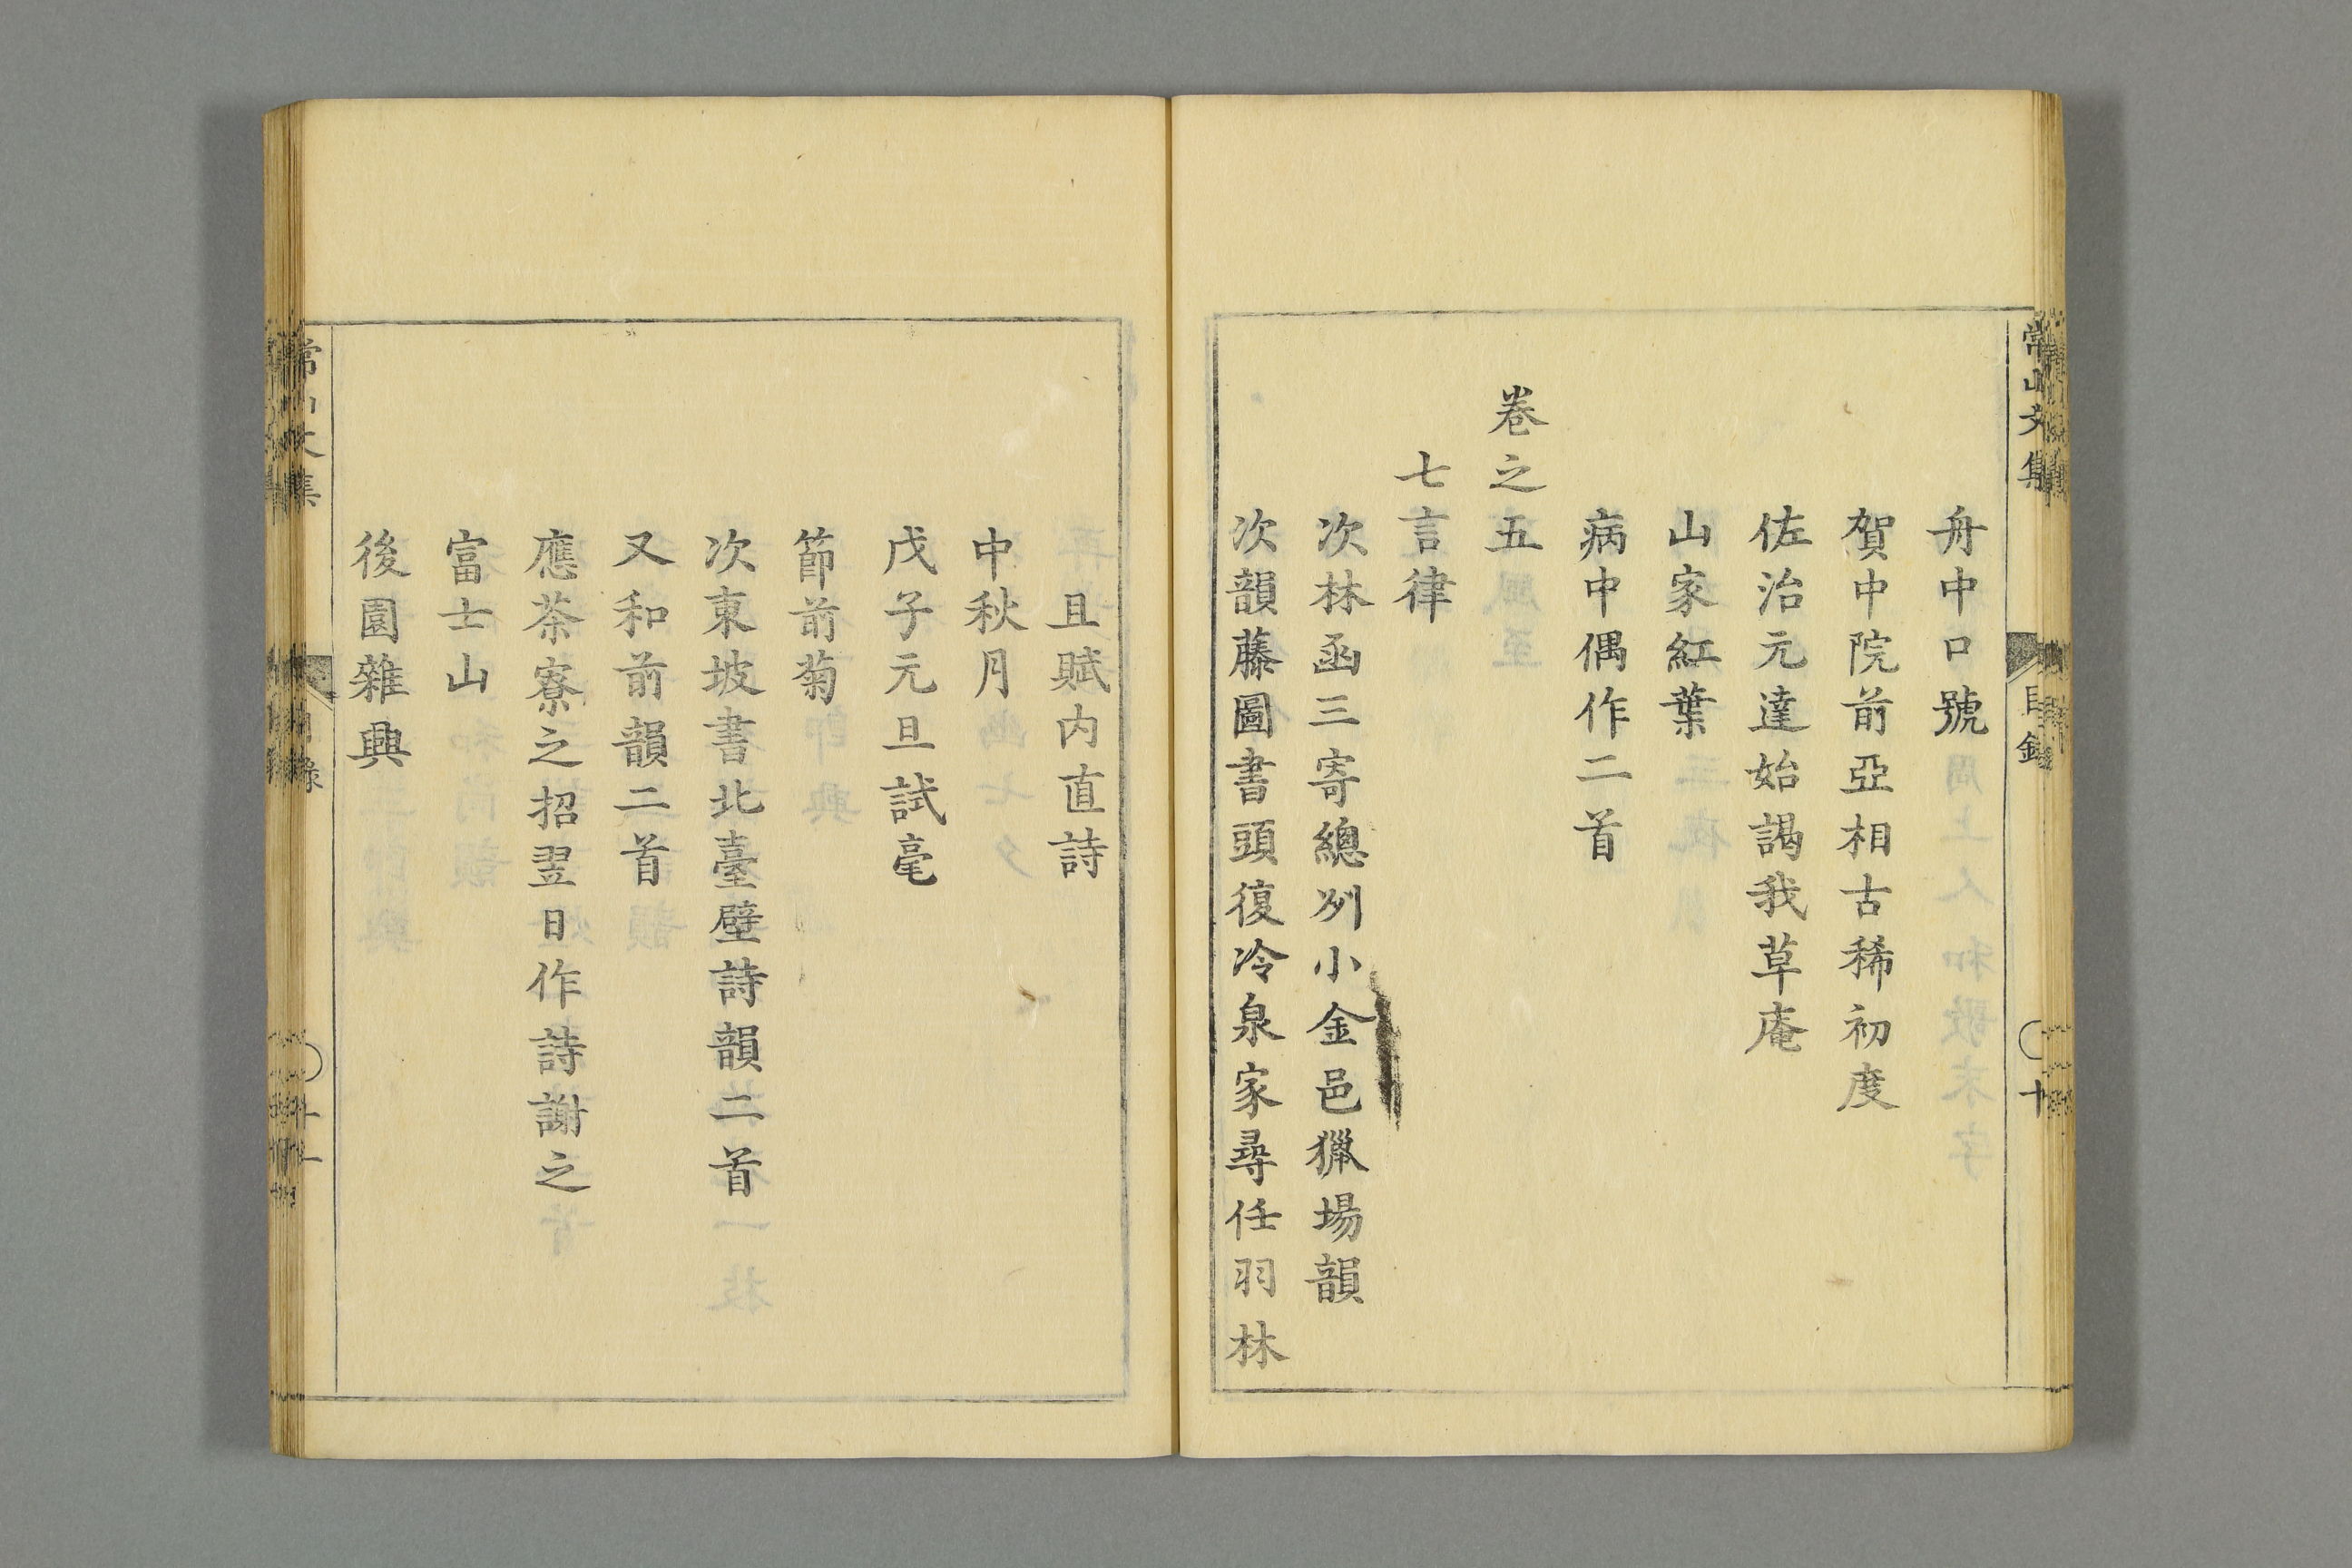 常山文集
目錄
十
舟中口號
賀中院前亞相古稀初度
佐治元達始謁我草庵
山家紅葉
病中偶作二首
卷之五
七言律
次林函三寄總刕小金邑獵場韻
次韻藤圖書頭復冷泉家尋任羽林
且賦内直詩
中秋月
戊子元旦試毫
節前菊
次東坡書北臺壁詩韻二首
又和前韻二首
應茶寮之招翌日作詩謝之
富士山
後園雜興
常山文集
目錄
十一